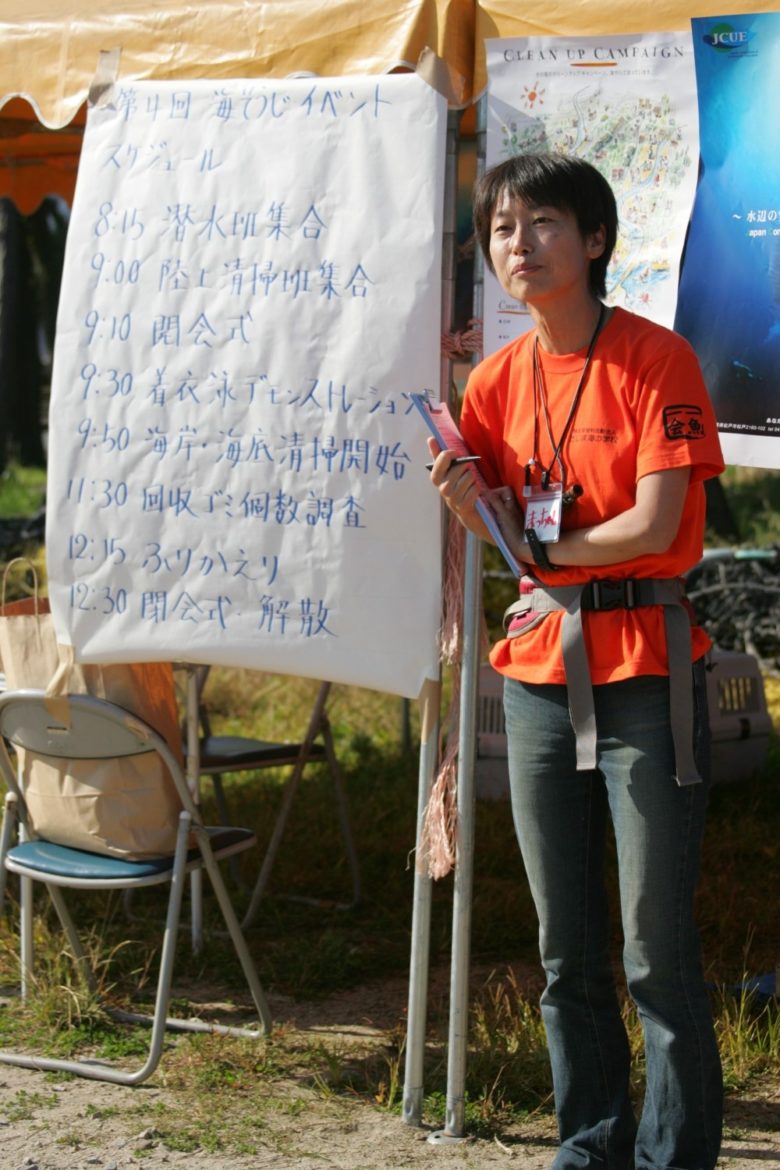 第4回 海そうじイベント
スケジュール
8:15 潜水班集合
9:00 陸上清掃班集合
9:10 開会式
9:30 着衣泳デモンストレーション
9:50 海岸・海底清掃開始
11:30 回収ゴミ個数調査
12:15 ふりかえり
12:30 閉会式・解散
CLEAN UP CAMPAIGN
JCUE
～水辺の
apan